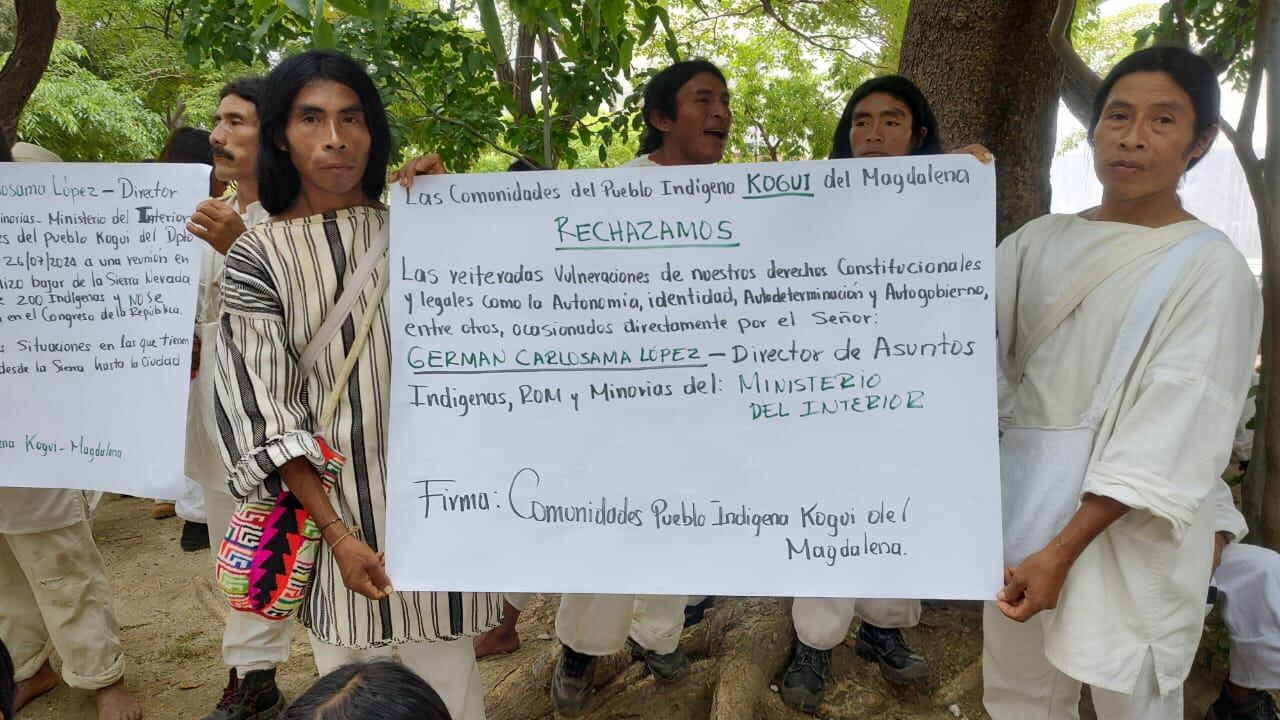 osama López – Director
inorias - Ministerio del Interior
es del pueblo Kogui del Dpto
26/07/2024 a una reunión en
lizo bajar de la Sierra Nevada
200 Indígenas y NO Se
en el Congreso de la República.
s Situaciones en las que tienen
desde la Sierra hasta la Ciudad
ena Kogui - Magdalena
Las Comunidades del Pueblo Indígena KOGUI del Magdalena
RECHAZAMOS
Las reiteradas Vulneraciones de nuestros derechos Constitucionales
y legales como la Autonomía, identidad, Autodeterminación y Autogobierno,
entre otros, ocasionados directamente por el Señor:
GERMAN CARLOSAMA LÓPEZ – Director de Asuntos
Indígenas, ROM y Minorias del: MINISTERIO
DEL INTERIOR
Firma: Comunidades Pueblo Indígena Kogui del
Magdalena.